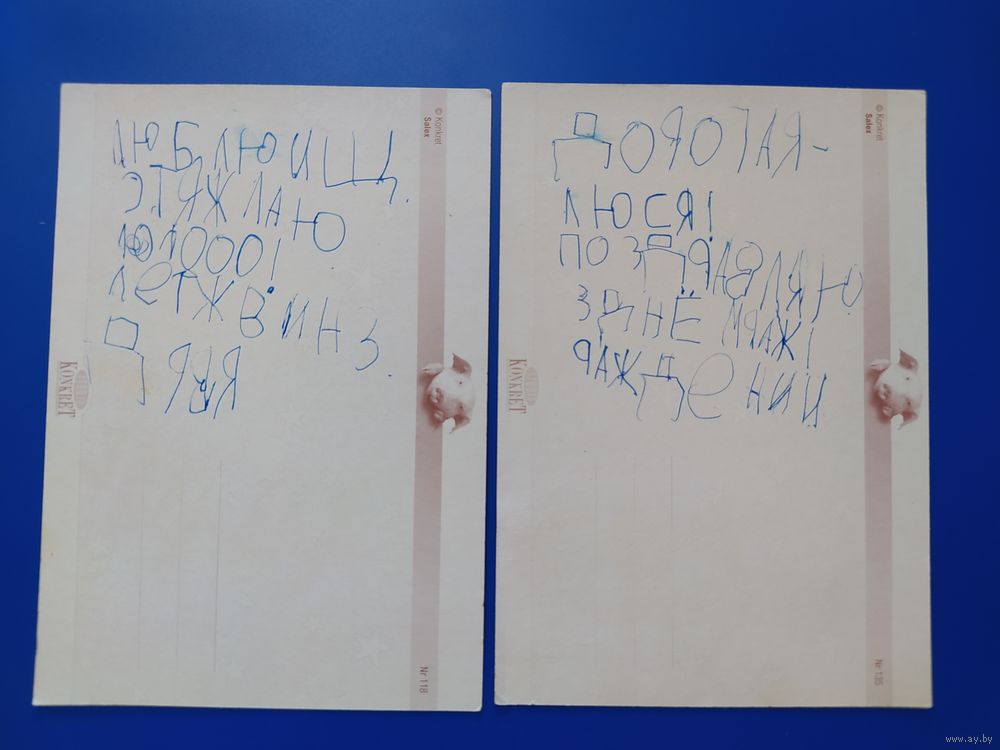 ЛЮБЛЮ И Щ
ЛАЮ
1000!
ЛЕТ Ж В ИНЗ.
© Konkret
Salex
KONKRET
Nr 118
ДОРОГАЯ-
ЛЮСЯ!
ПОЗДРАВЛЯЮ
З ДНЁ
РАЖДЕНИИ
© Konkret
Salex
KONKRET
Nr 135
www.ay.by